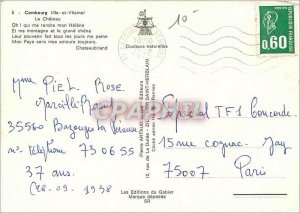 5 - Combourg (Ille-et-Vilaine)
Le Château
Oh ! qui me rendra mon Hélène
Et ma montagne et le grand chêne
Leur souvenir fait tous les jours ma peine
Mon Pays sera mes amours toujours.
Chateaubriand
Couleurs naturelles
10
0,60
Mme PIEL ROSE
35560 Bazouges La Perouse
n° téléphone 730655
37 ans.
(28-09-1938
Spécial TF1 CONCORDE
15 rue cognac Jay
75007
Paris
Les Editions du Gabier
Marque déposée